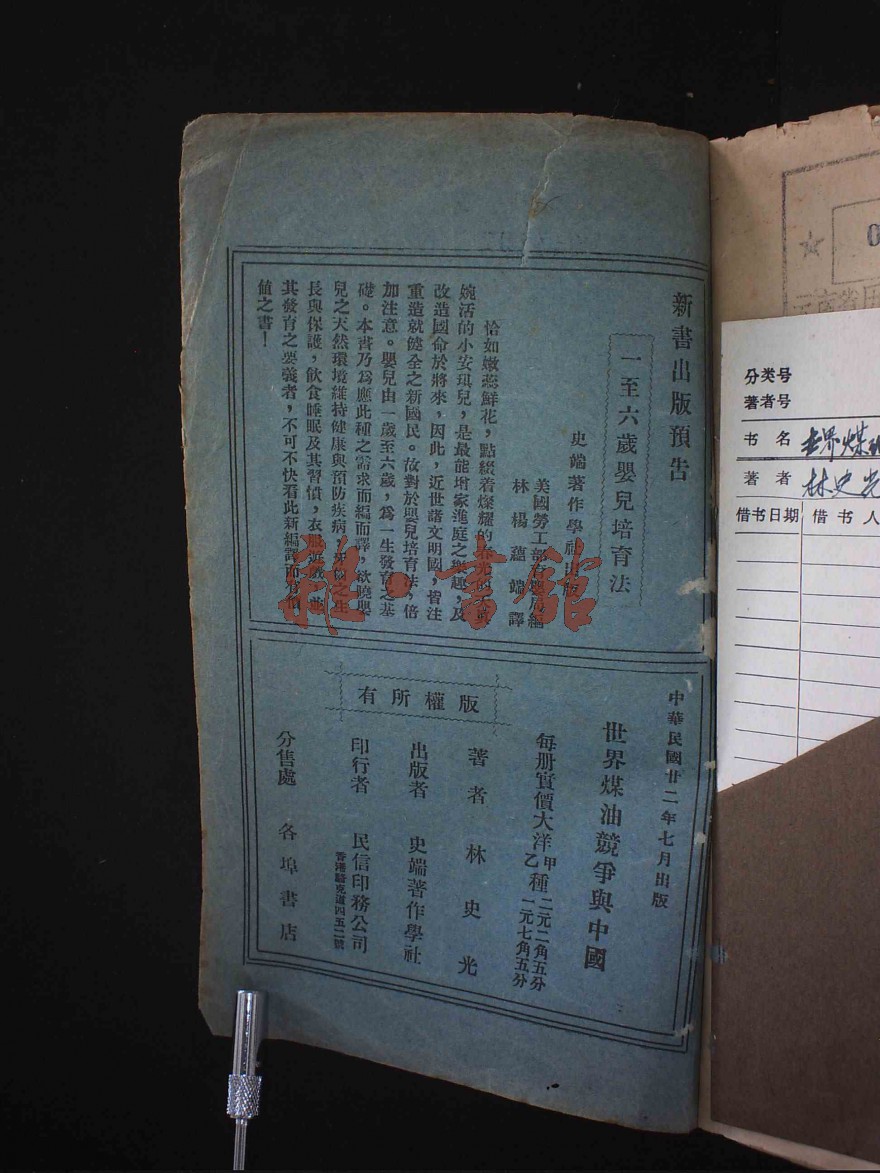 新書出版預告
一至六歲嬰兒培育法
史端著作學社出版
美國勞工部育嬰局編
林楊蘊端譯
恰如嫩蕊鮮花,點綴着燦耀的春光的天真
婉活的小安琪兒,是最能增家進庭之樂趣,及
改造國命於將來,因此,近世諸文明國,皆注
重造就健全之新國民。故對於嬰兒培育法,倍
加注意。嬰兒由一歲至六歲,爲一生發育之基
礎。本書乃爲應此種之需求而編而譯,欲曉嬰
兒之天然環境維持健康與預防疾病,死傷之生
長與保護,飲食睡眠及其習慣,衣服遊戲,並
其發育之要義者,不可不快看此新編譯而有價
値之書!
中華民國廿二年七月出版
世界煤油競爭與中國
每册實價大洋甲種二元二角五分
乙種一元七角五分
版權所有
著者 林史光
出版者 史端著作學社
印行者 民信印務公司
香港駱克道四五二號
分售處 各埠書店
雜·書館
分类号
著者号
书名 世界煤
著者 林史光
借书日期 借书人